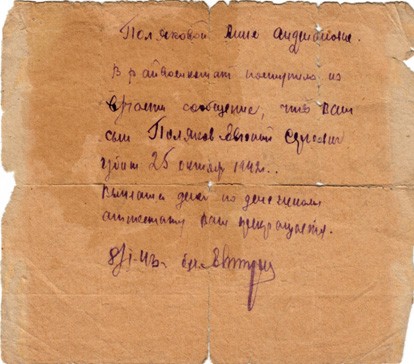 Поляковой Анне Андрияновне.
В райвоенкомат поступило из
сообщение, что Ваш
сын Поляков Евгений Сергеевич
убит 25 октября 1942 г..
Выплата денег по денежному
аттестату Вам прекращается.